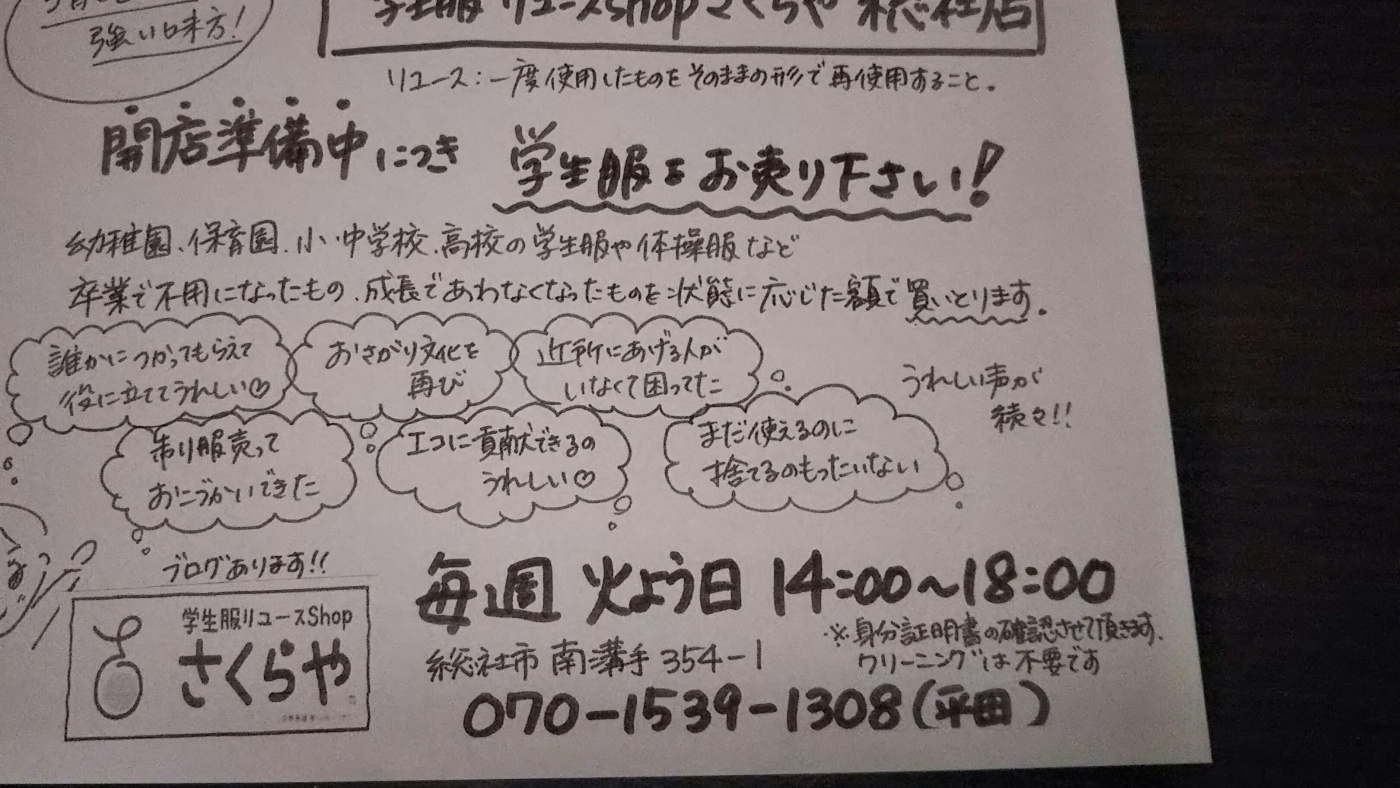 強い味方!
学生服リユースshopさくらや 総社店
リユース:一度使用したものをそのままの形で再使用すること。
開店準備中につき 学生服をお売り下さい!
幼稚園、保育園、小・中学校、高校の学生服や体操服など
卒業で不用になったもの、成長であわなくなったものを状態に応じた額で買いとります。
誰かにつかってもらえて
役に立ててうれしい♡
おさがり文化を
再び
近所にあげる人が
いなくて困ってた
うれしい声が
続々!!
吊り服売って
おこづかいできた
エコに貢献できるの
うれしい♡
まだ使えるのに
捨てるのもったいない
ブログあります!!
学生服リユースShop
さくらや
毎週 火よう日 14:00~18:00
※身分証明書の確認させて頂きます。
クリーニングは不要です
総社市 南溝手 354-1
070-1539-1308(平田)